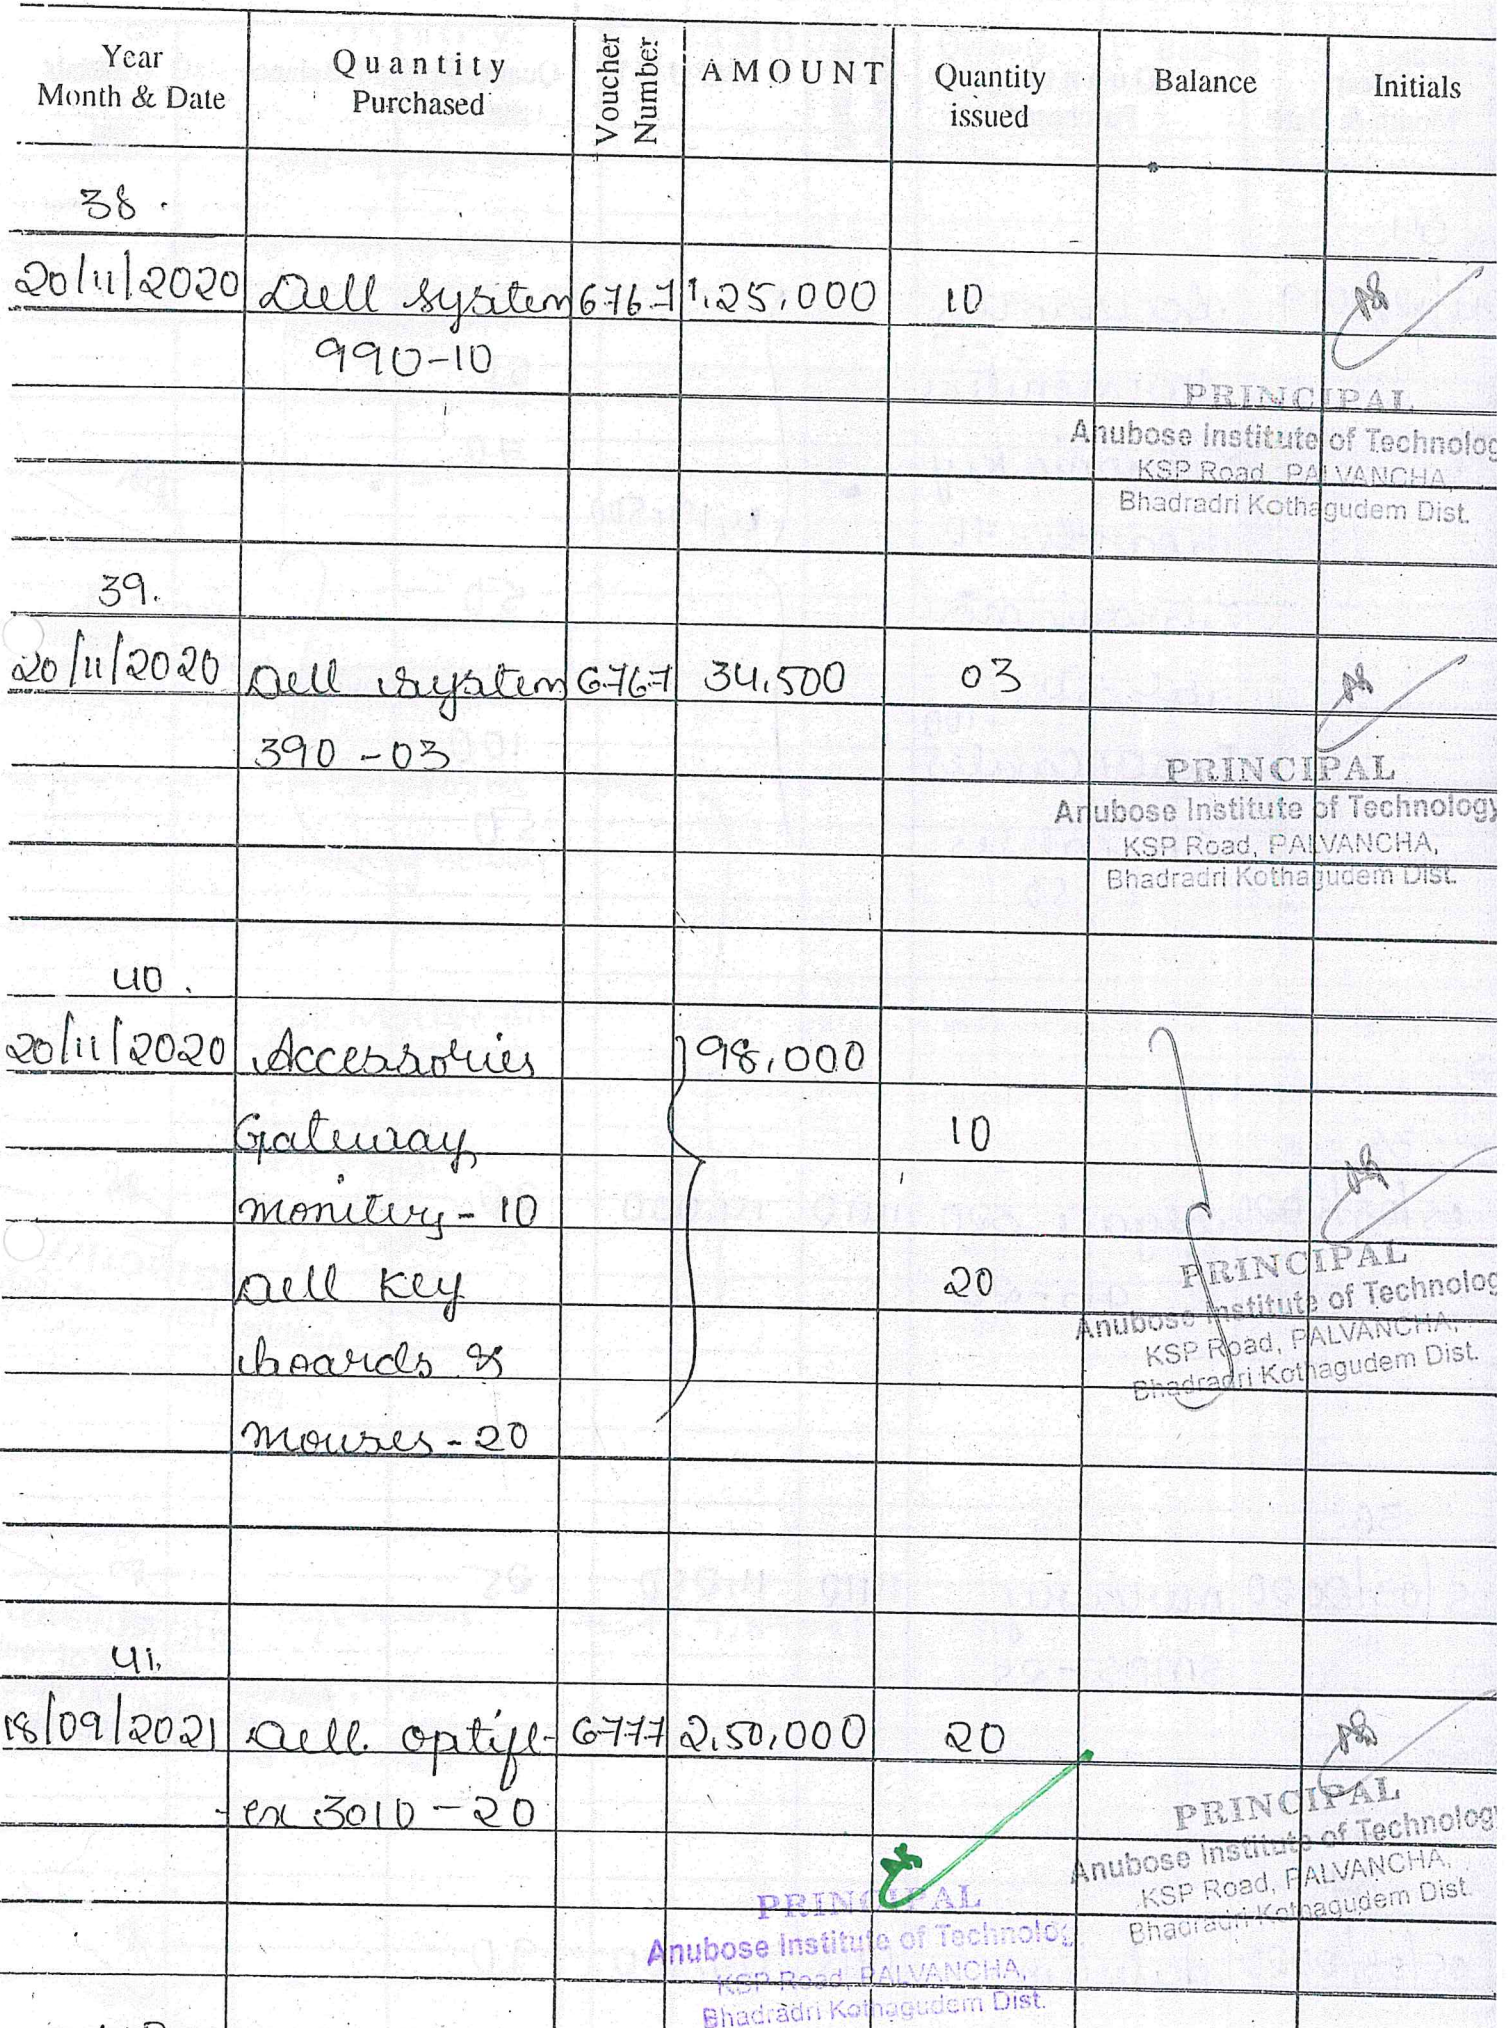 Year Month & Date | Quantity Purchased | Voucher Number | AMOUNT | Quantity issued | Balance | Initials
38.
20/11/2020 | Dell system | 6767 | 1,25,000 | 10
990-10
PRINCIPAL
Anubose Institute of Technolog
KSP Road, PALVANCHA,
Bhadradri Kothagudem Dist.
39.
20/11/2020 | Dell system | 6767 | 34,500 | 03
390-03
PRINCIPAL
Anubose Institute of Technology
KSP Road, PALVANCHA,
Bhadradri Kothagudem Dist.
40.
20/11/2020 | Accessories | 98,000
Gateway | 10
moniters-10
Dell key | 20
boards &
mouses-20
PRINCIPAL
Anubose Institute of Technolog
KSP Road, PALVANCHA,
Bhadradri Kothagudem Dist.
41.
18/09/2021 | Dell optipl- | 6777 | 2,50,000 | 20
-ex 3010-20
PRINCIPAL
Anubose Institute of Technology
KSP Road, PALVANCHA,
Bhadradri Kothagudem Dist.
PRINCIPAL
Anubose Institute of Technolog
KSP Road, PALVANCHA,
Bhadradri Kothagudem Dist.